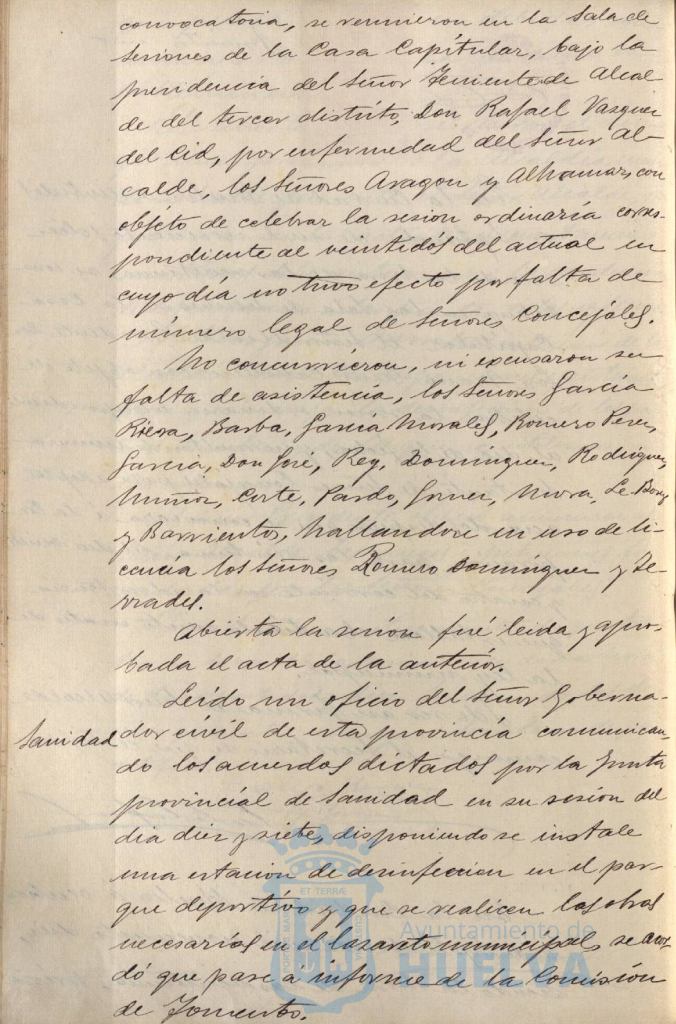 convocatoria, se reunieron en la Sala de
Sesiones de la Casa Capitular, bajo la
presidencia del Señor Teniente de Alcal
de del tercer distrito, Don Rafael Vazquez
del Cid, por enfermedad del Señor Al-
calde, los Señores Aragon y Alhamar, con
objeto de celebrar la sesion ordinaria corres-
pondiente al veintidós del actual en
cuyo día no tuvo efecto por falta de
número legal de Señores Concejales.
No concurrieron, ni excusaron su
falta de asistencia, los Señores García
Riera, Barba, García Morales, Romero Perez,
García, Don José, Rey, Dominguez, Rodriguez,
Muñoz, Corte, Pardo, Mora, Le-Bourg
y Barrientos, hallandose en uso de li-
cencia los Señores Romero Dominguez y Te-
rrades.
Abierta la sesión fué leida y apro-
bada el acta de la anterior.
Leido un oficio del Señor Goberna-
Sanidad
dor civil de esta provincia comunican-
do los acuerdos dictados por la Junta
provincial de Sanidad en su sesión del
dia diez y siete, disponiendo se instale
una estacion de desinfeccion en el par-
que deportivo y que se realicen las obras
necesarias en el lazareto municipal, se acor-
dó que pase á informe de la Comisión
de Fomento.
ET TERRÆ
Ayuntamiento de
HUELVA